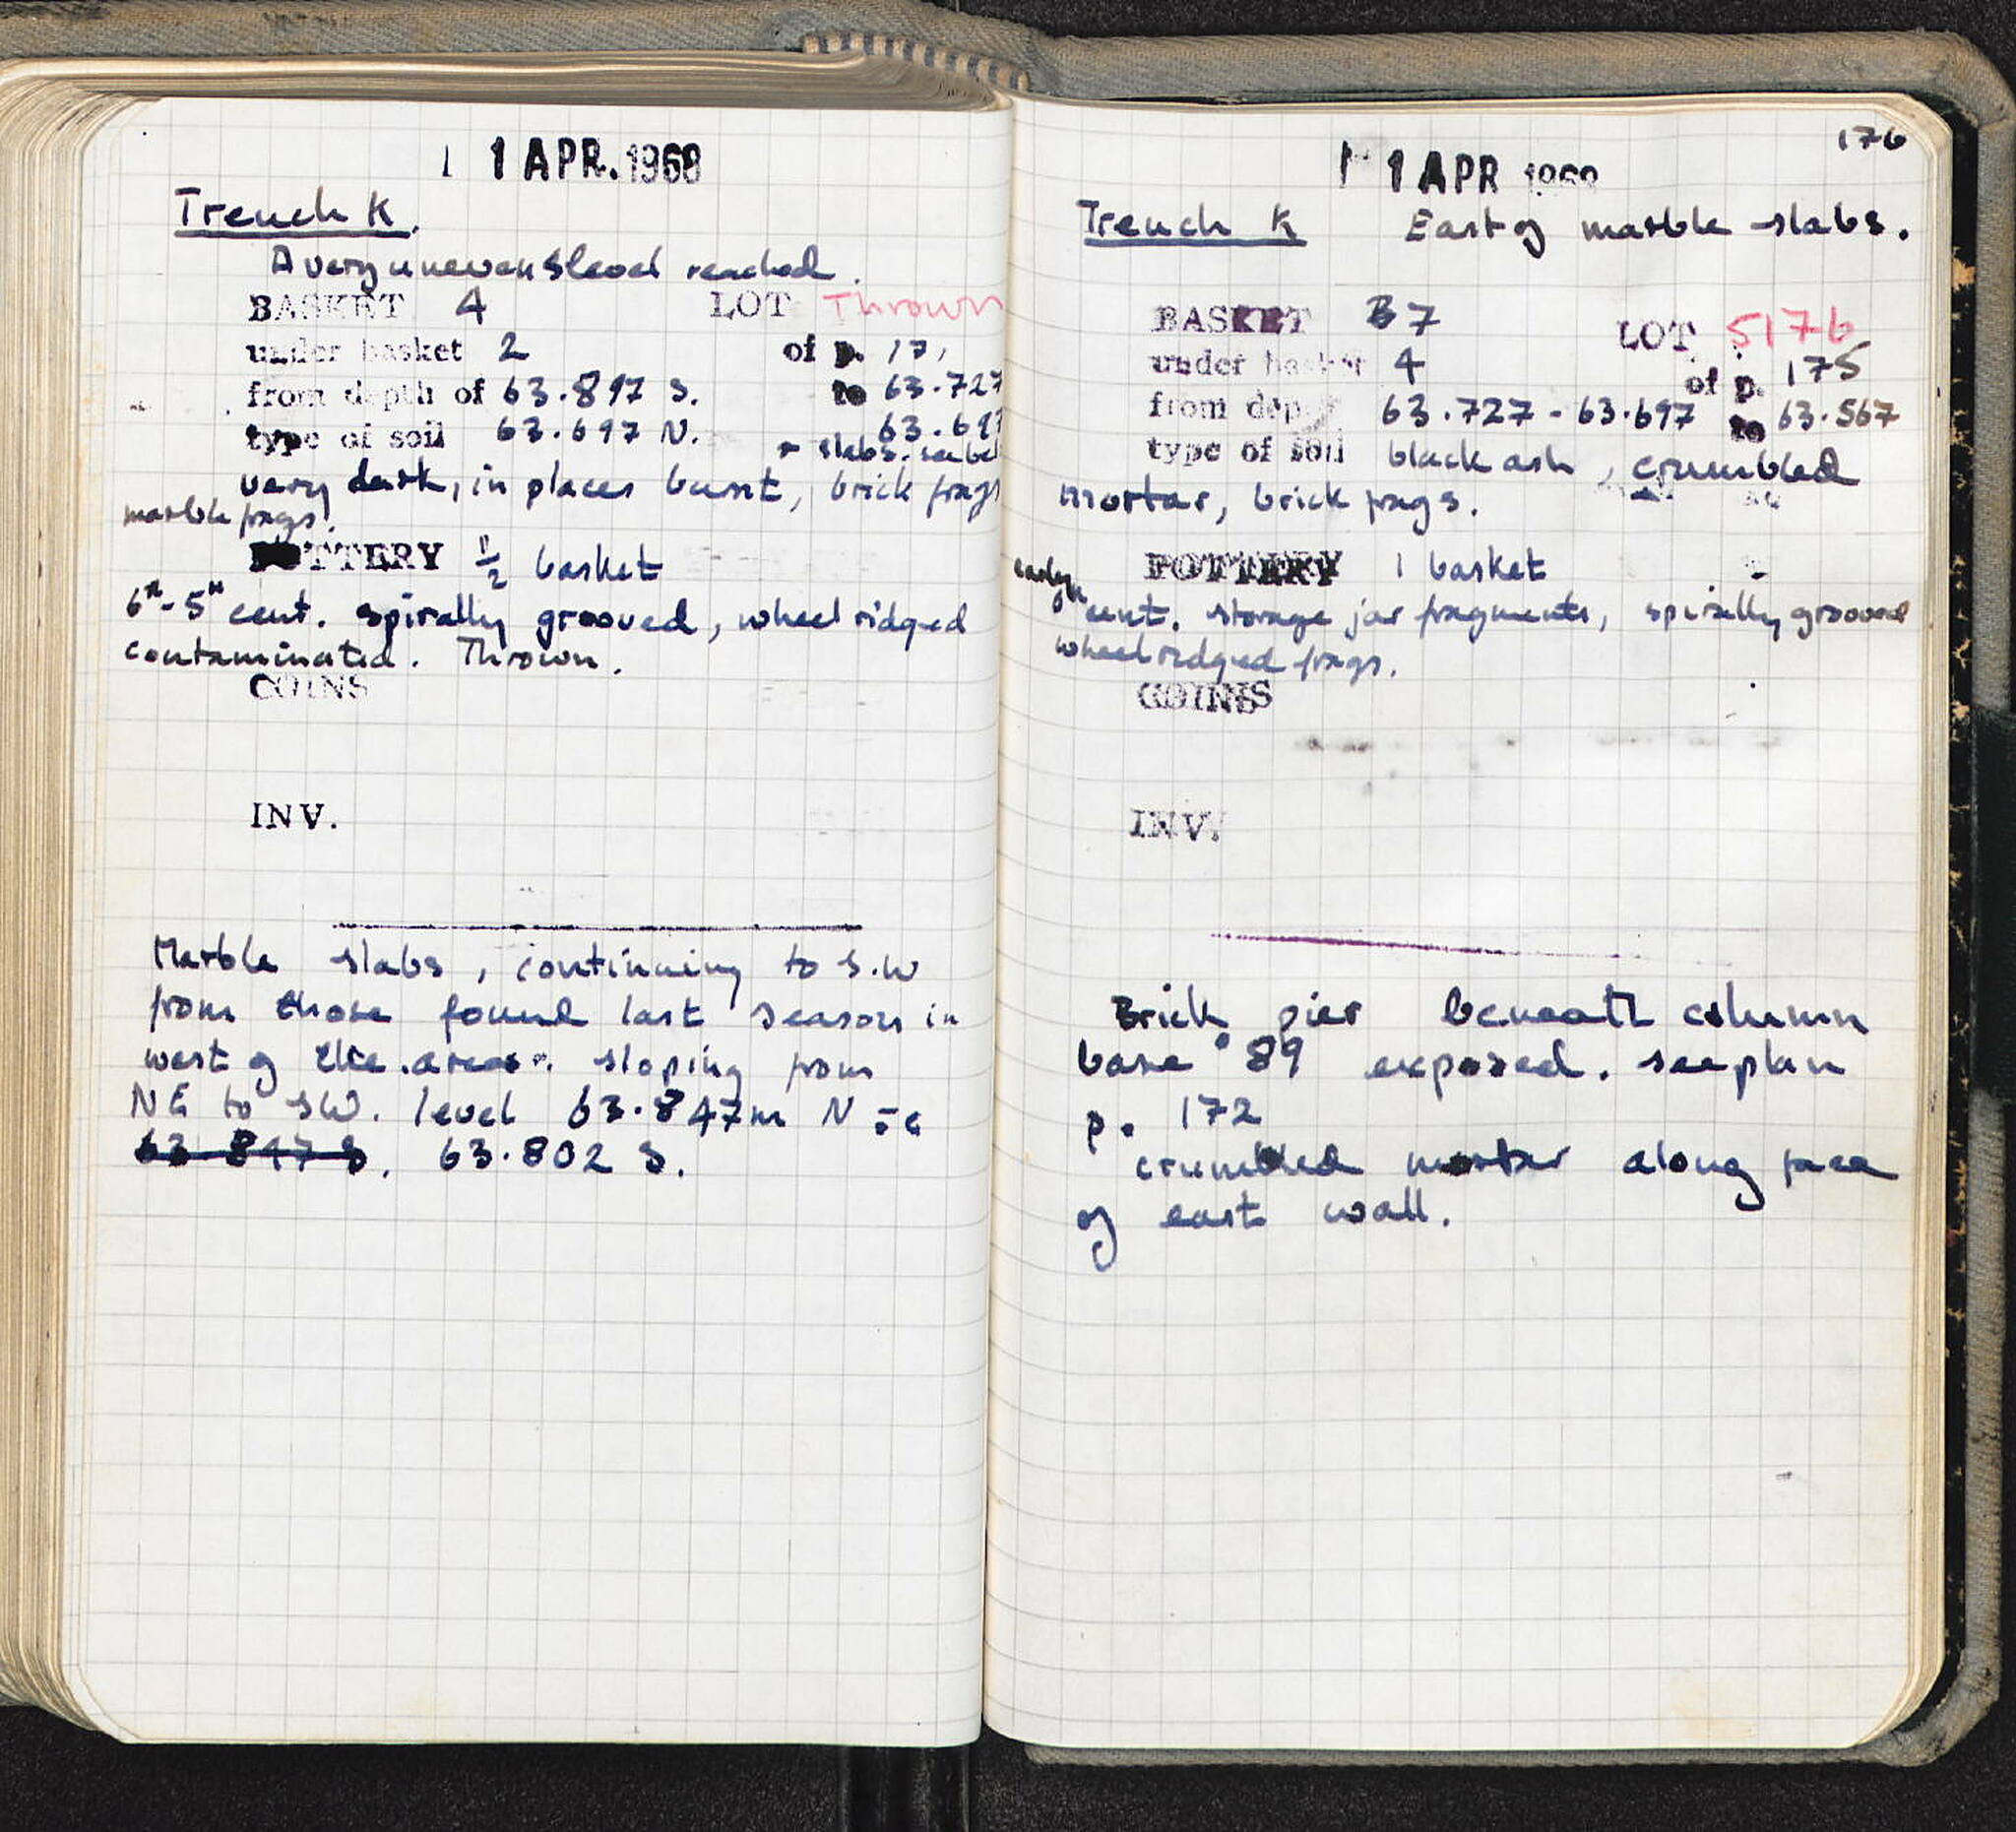 1 1 APR. 1968
Trench K.
A very uneven level reached.
BASKET 4 LOT Thrown
under basket 2 of p. 17
from depth of 63.897 S. to 63.727
type of soil 63.697 N. 63.69
+ slabs. see bel
very dark, in places burnt, brick frags
marble frags.
POTTERY 1/2 basket
6th-5th cent. spirally grooved, wheel ridged
contaminated. Thrown.
COINS
INV.
Marble slabs, continuing to S.W
from those found last season in
west of the area. sloping from
NE to SW. level 63.847m N
63 847 S. 63.802 S.
176
1 1 APR 1968
Trench K East of marble slabs.
BASKET B7 LOT 5176
under basket 4 of p. 175
from dep 63.727-63.697 to 63.567
type of soil black ash, crumbled
mortar, brick frags.
POTTERY 1 basket
early cent. storage jar fragments, spirally grooved
wheel ridged frags.
COINS
INV.
Brick pier beneath column
base 89 exposed. see plan
p. 172
crumbled mortar along face
of east wall.